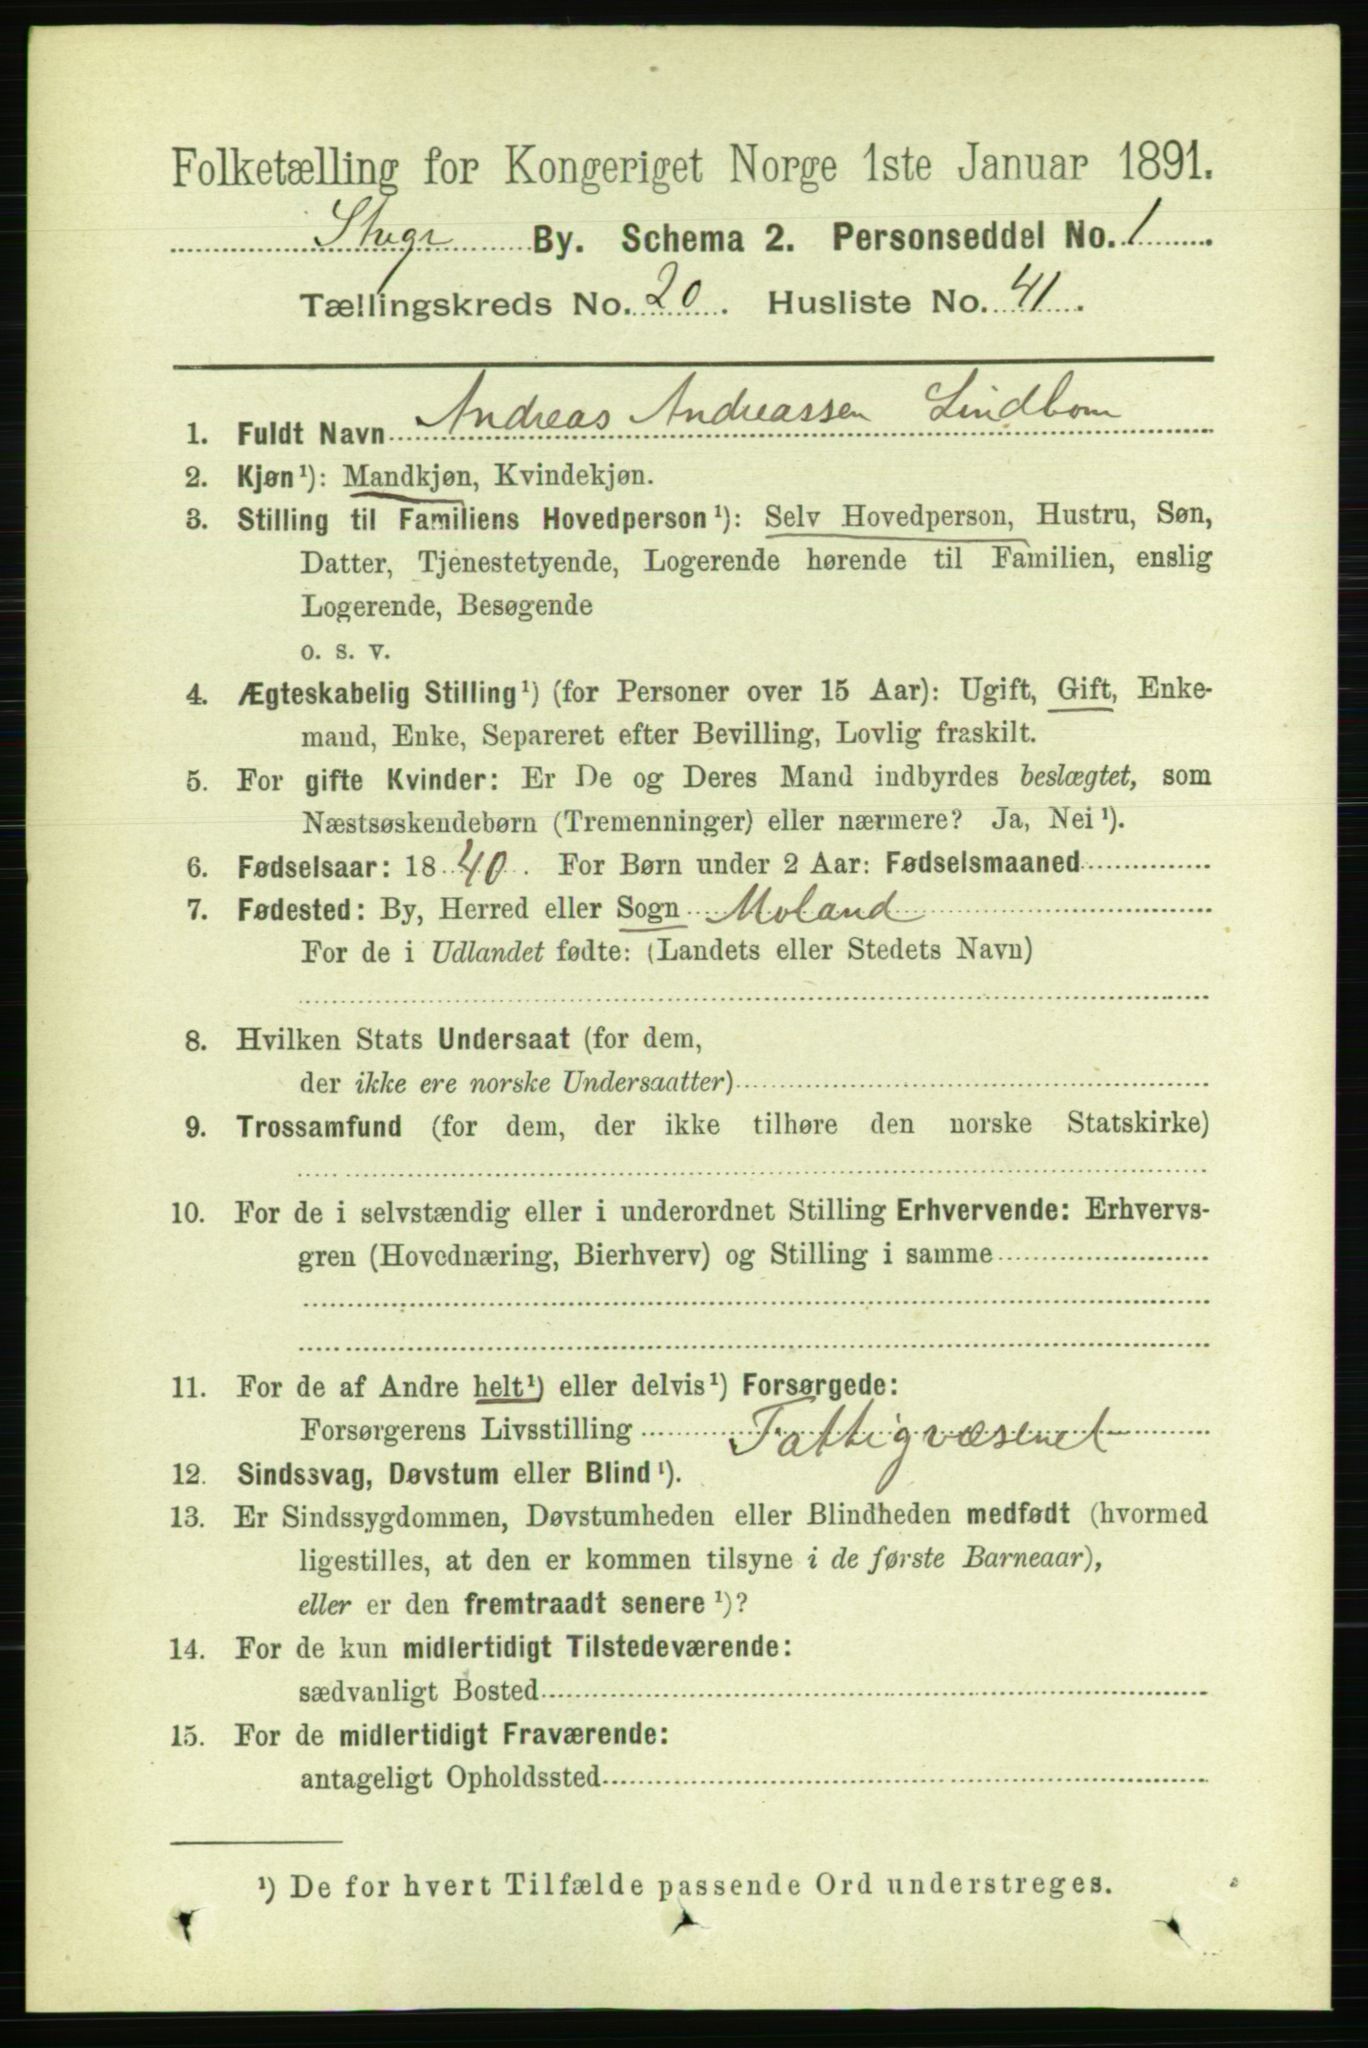 Folketælling for Kongeriget Norge 1ste Januar 1891.
By. Schema 2. Personseddel No. 1
Tællingskreds No. 20. Husliste No. 41.
1. Fuldt Navn Andreas Andreassen Lindbom
2. Kjøn¹): Mandkjøn, Kvindekjøn.
3. Stilling til Familiens Hovedperson¹): Selv Hovedperson, Hustru, Søn,
Datter, Tjenestetyende, Logerende hørende til Familien, enslig
Logerende, Besøgende
o. s. v.
4. Ægteskabelig Stilling¹) (for Personer over 15 Aar): Ugift, Gift, Enke-
mand, Enke, Separeret efter Bevilling, Lovlig fraskilt.
5. For gifte Kvinder: Er De og Deres Mand indbyrdes beslægtet, som
Næstsøskendebørn (Tremenninger) eller nærmere? Ja, Nei¹).
6. Fødselsaar: 1840. For Børn under 2 Aar: Fødselsmaaned
7. Fødested: By, Herred eller Sogn Moland
For de i Udlandet fødte: (Landets eller Stedets Navn)
8. Hvilken Stats Undersaat (for dem,
der ikke ere norske Undersaatter)
9. Trossamfund (for dem, der ikke tilhøre den norske Statskirke)
10. For de i selvstændig eller i underordnet Stilling Erhvervende: Erhvervs-
gren (Hovednæring, Bierhverv) og Stilling i samme
11. For de af Andre helt¹) eller delvis¹) Forsørgede:
Forsørgerens Livsstilling Fattigvæsenet
12. Sindssvag, Døvstum eller Blind¹).
13. Er Sindssygdommen, Døvstumheden eller Blindheden medfødt (hvormed
ligestilles, at den er kommen tilsyne i de første Barneaar),
eller er den fremtraadt senere¹)?
14. For de kun midlertidigt Tilstedeværende:
sædvanligt Bosted
15. For de midlertidigt Fraværende:
antageligt Opholdssted
¹) De for hvert Tilfælde passende Ord understreges.